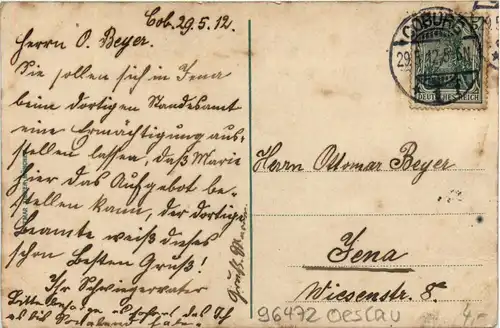 Cob. 29.5.12.
Herrn O. Beyer.
Sie sollen sich in Jena
beim dortigen Standesamt
eine Ermächtigung aus-
stellen lassen, daß Marie
hier das Aufgebot be-
stellen kann, der dortige
Beamte weiß dieses
schon Besten Gruß!
Ihr Schwiegervater
Gruß
COBURG 1
29
DEUTSCHES REICH
Herrn Ottomar Beyer
Jena
Wiesenstr. 8.
96472 Oeslau
4,-